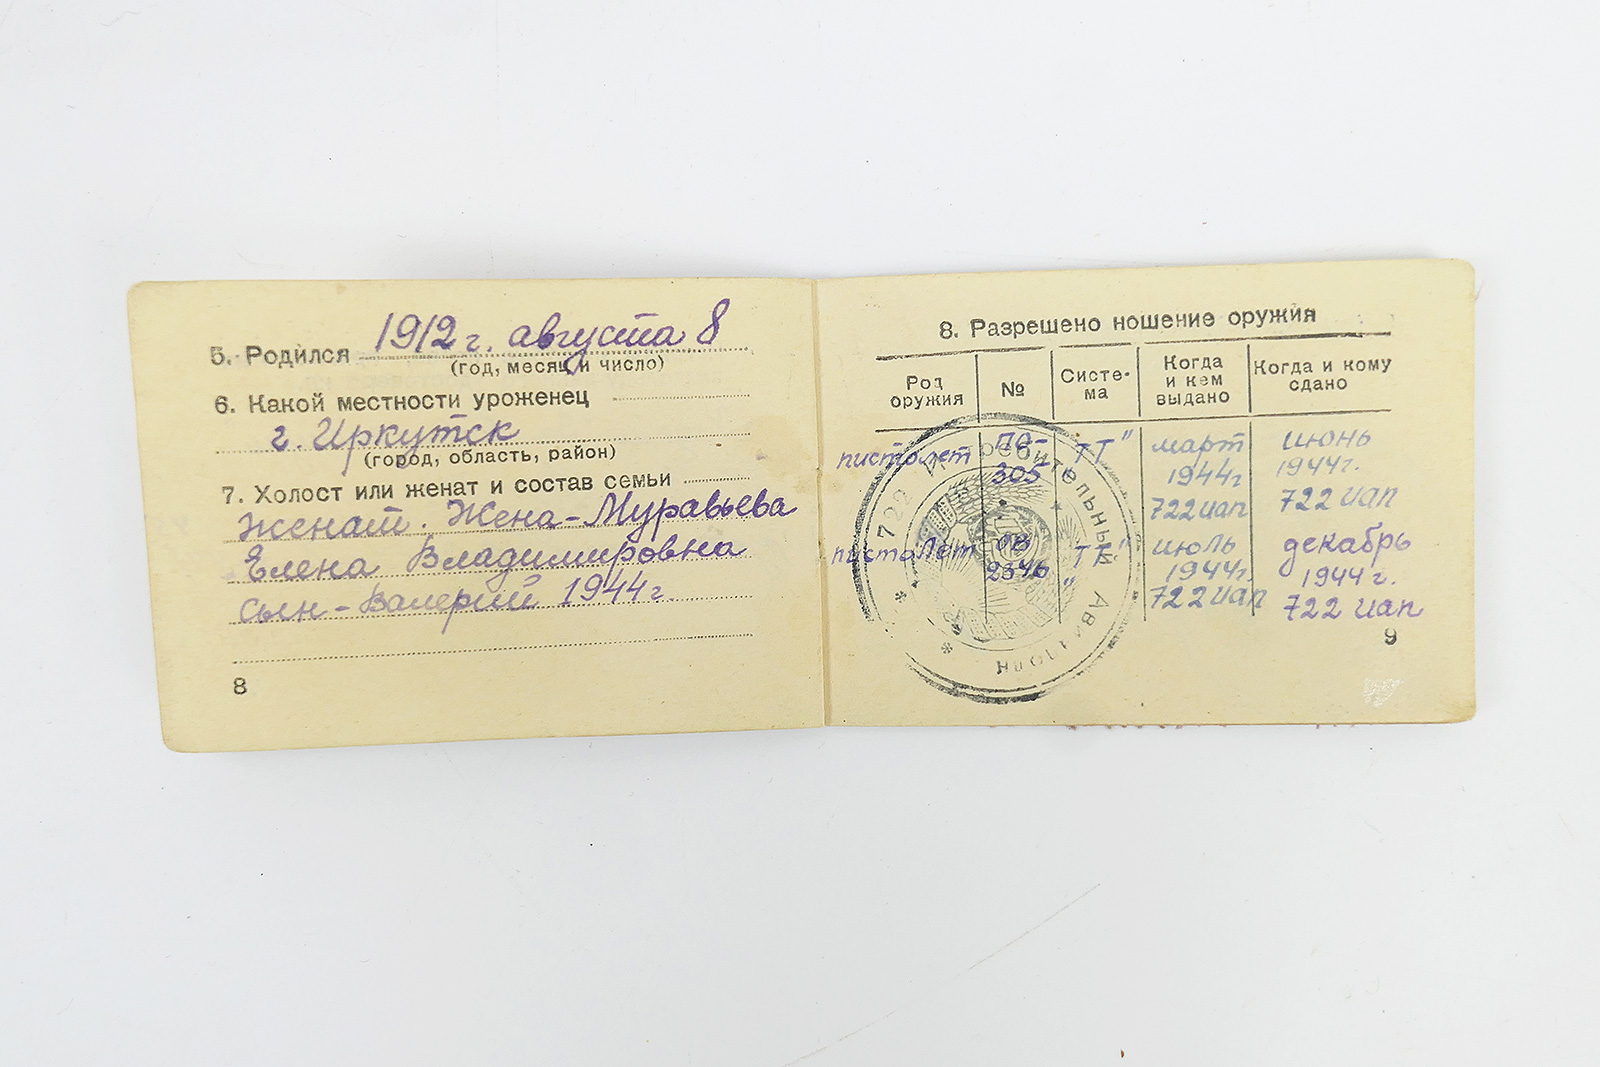 5. Родился 1912 г. августа 8
(год, месяц и число)
6. Какой местности уроженец
г. Иркутск
(город, область, район)
7. Холост или женат и состав семьи
Женат. Жена-Муравьева
Елена Владимировна
сын-Валерий 1944 г.
8
8. Разрешено ношение оружия
Род оружия № Систе-ма Когда и кем выдано Когда и кому сдано
пистолет ПО-305 ТТ" март 1944г 722 иап июнь 1944г. 722 иап
пистолет 2346 ТТ" июль 1944г. 722 иап декабрь 1944 г. 722 иап
9
722 Истребительный Авиацион